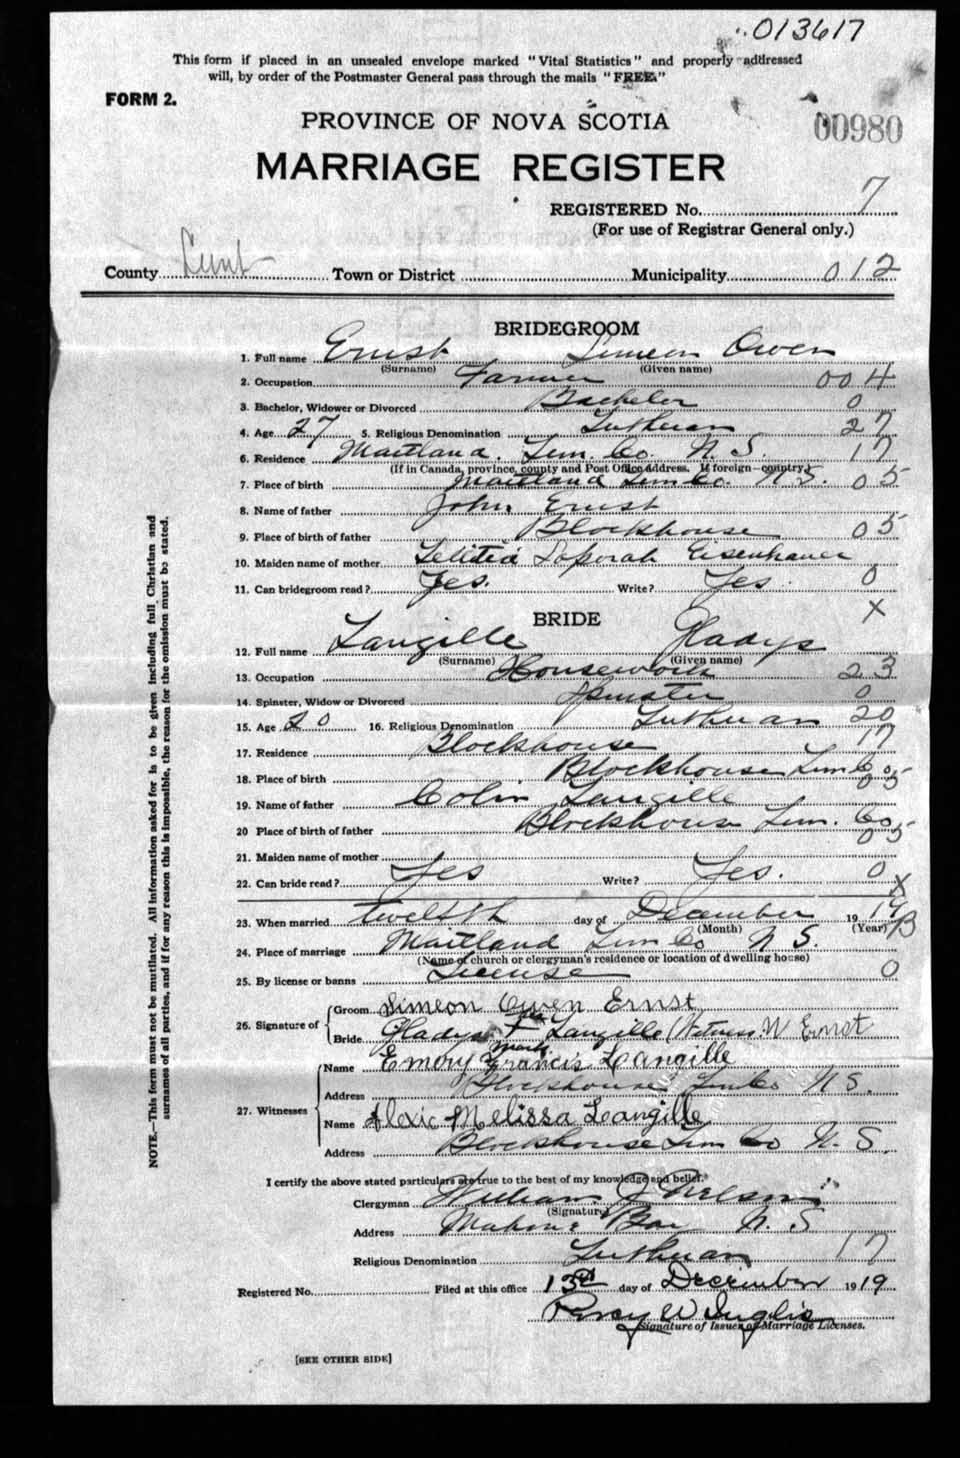 013617
This form if placed in an unsealed envelope marked "Vital Statistics" and properly addressed
will, by order of the Postmaster General pass through the mails "FREE."
FORM 2.
PROVINCE OF NOVA SCOTIA
00980
MARRIAGE REGISTER
REGISTERED No. 7
(For use of Registrar General only.)
County Lunb Town or District Municipality 012
BRIDEGROOM
1. Full name Ernst Simeon Owen
(Surname) (Given name)
2. Occupation Farmer 004
3. Bachelor, Widower or Divorced Bachelor 0
4. Age 27 5. Religious Denomination Lutheran 27
6. Residence Maitland. Lun. Co. N. S. 17
(If in Canada, province, county and Post Office address. If foreign—country)
7. Place of birth Maitland Lun Co. N. S. 05
8. Name of father John Ernst
9. Place of birth of father Blockhouse 05
10. Maiden name of mother Letitia Eisenhauer
11. Can bridegroom read? Yes. Write? Yes. 0
X
BRIDE
12. Full name Langille Gladys
(Surname) (Given name)
13. Occupation Housework 23
14. Spinster, Widow or Divorced Spinster 0
15. Age 20 16. Religious Denomination Lutheran 20
17. Residence Blockhouse 17
18. Place of birth Blockhouse Lun Co 05
19. Name of father Colin Langille
20 Place of birth of father Blockhouse Lun. Co 05
21. Maiden name of mother
22. Can bride read? Yes Write? Yes. 0
X
23. When married twelfth day of December 1919
(Month) (Year)
24. Place of marriage Maitland Lun Co N S.
(Name of church or clergyman's residence or location of dwelling house)
25. By license or banns License 0
26. Signature of
Groom Simeon Owen Ernst
Bride Gladys her X mark Langille (Witness. W Ernst
27. Witnesses
Name Emory Francis Langille
Address Blockhouse Lun Co N S.
Name Alexic Melissa Langille
Address Blockhouse Lun Co N. S.
I certify the above stated particulars are true to the best of my knowledge and belief.
Clergyman William J Nelson
(Signature)
Address Mahone Bay N. S
Religious Denomination Lutheran 17
Registered No. Filed at this office 13th day of December 1919
Percy W Inglis
Signature of Issuer of Marriage Licenses.
[SEE OTHER SIDE]
NOTE.—This form must not be mutilated. All information asked for is to be given including full Christian and
surnames of all parties, and if for any reason this is impossible, the reason for the omission must be stated.